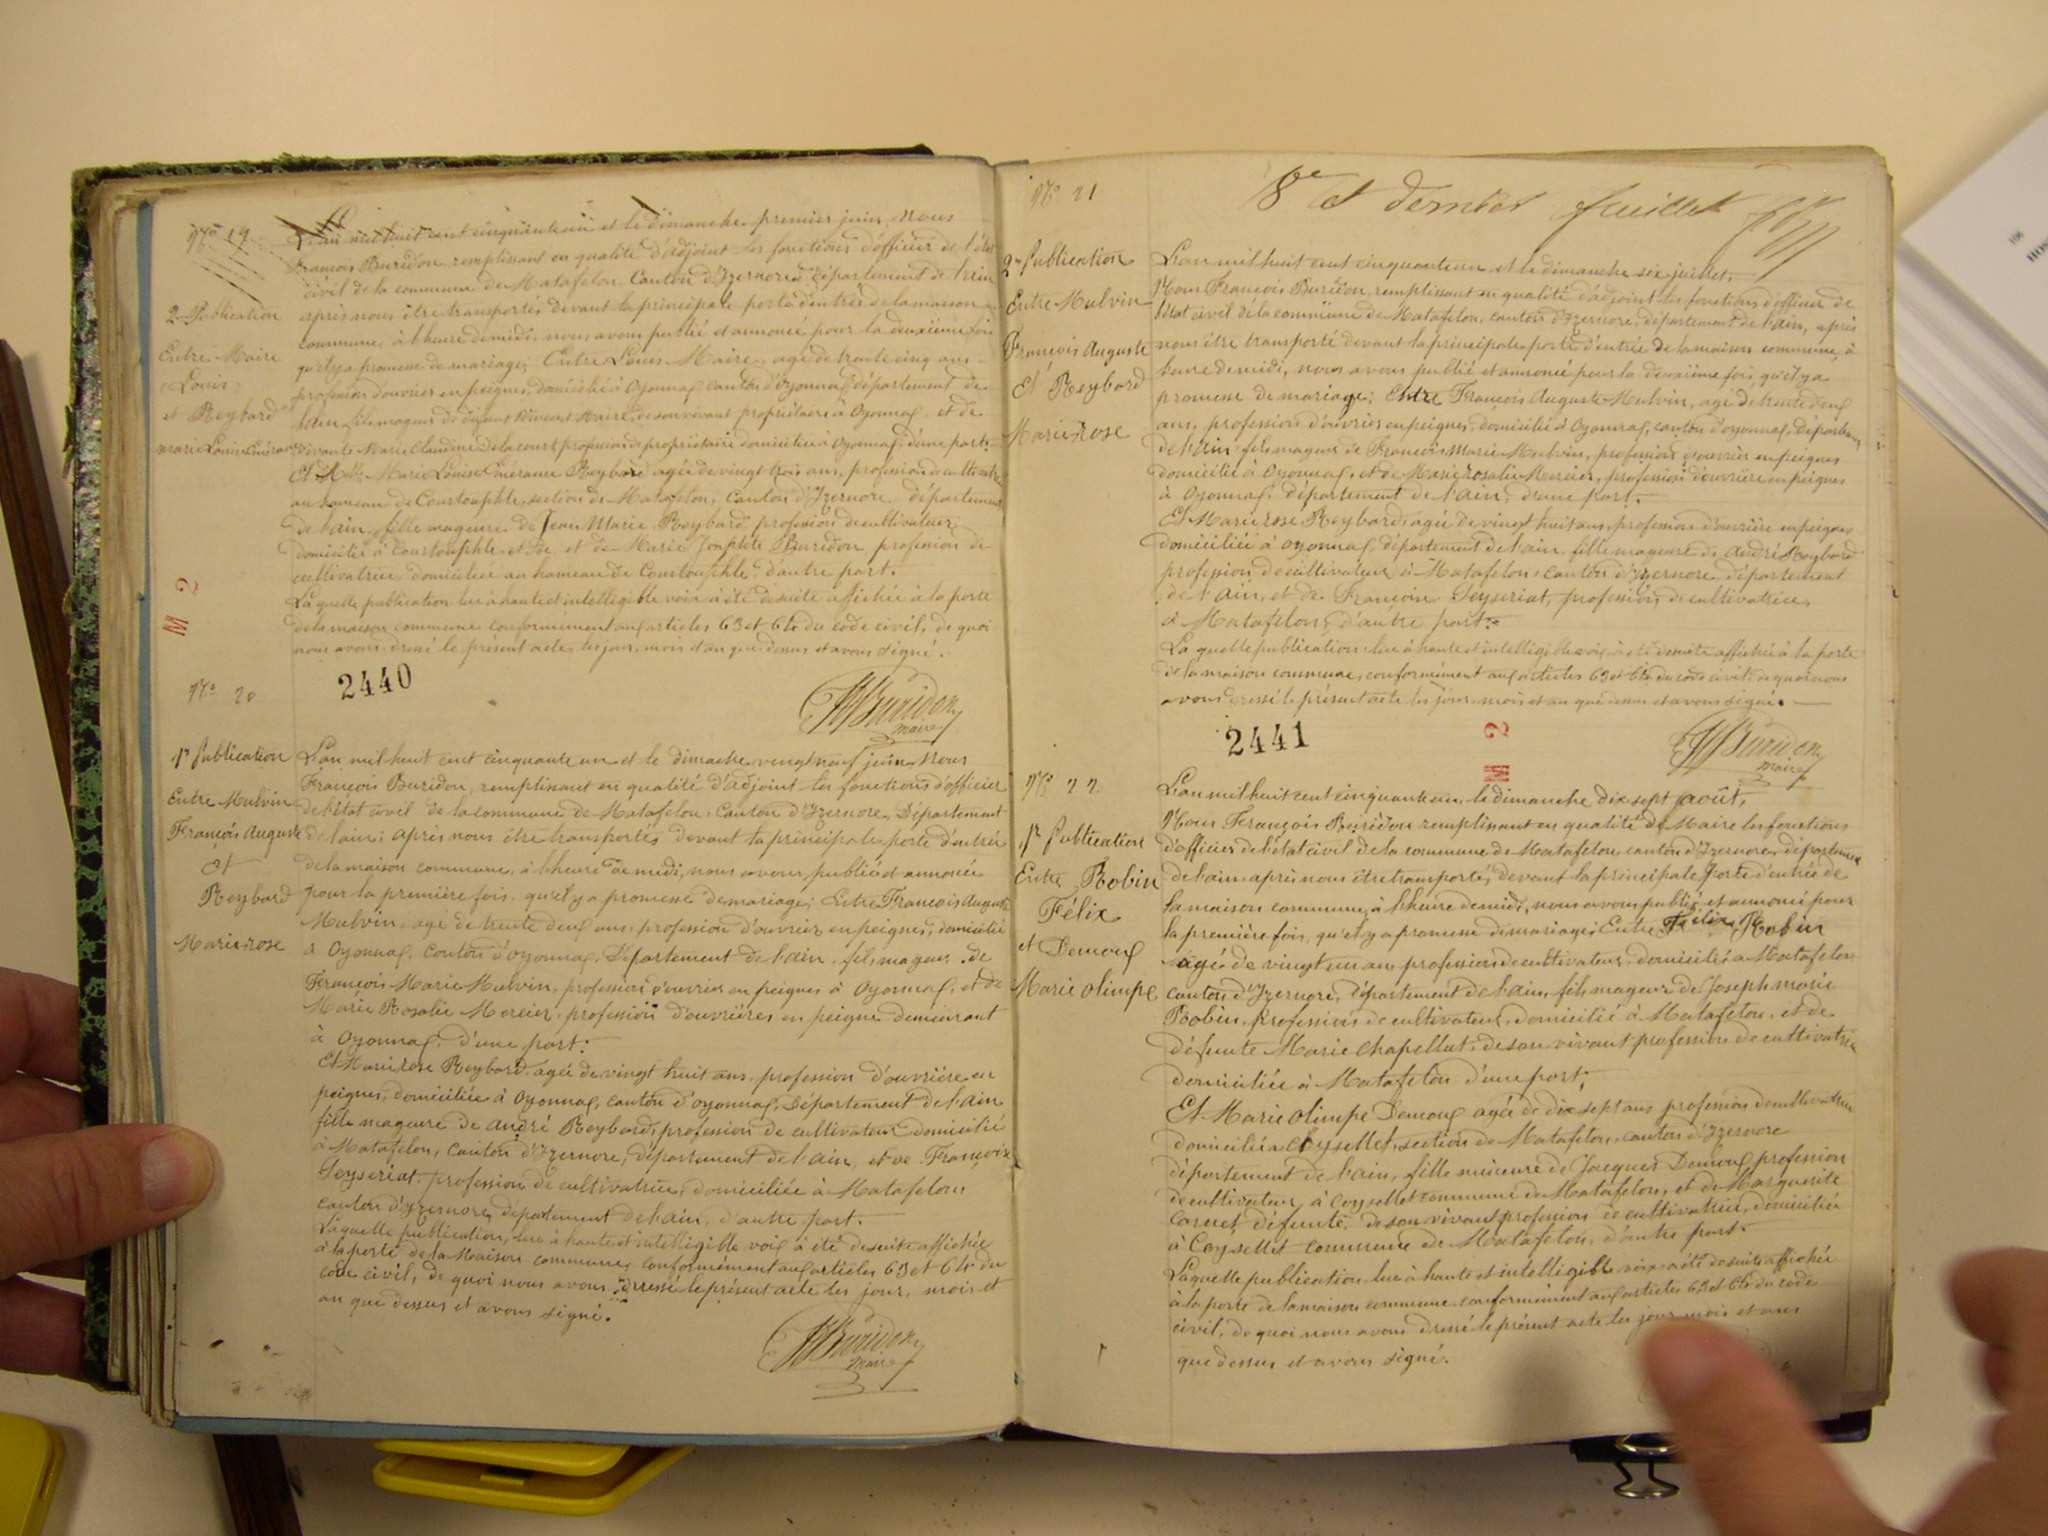 N° 19
L'an mil huit cent cinquante un et le dimanche premier juin, Nous
François Buridon remplissant en qualité d'adjoint les fonctions d'officier de l'état
civil de la commune de Matafelon Canton d'Izernore département de l'ain
après nous être transportés devant la principale porte d'entrée de la maison
commune, à l'heure de midi, nous avons publié et annoncé pour la deuxième fois
qu'il y a promesse de mariage; Entre Louis Maire, agé de trente cinq ans
profession d'ouvrier en peignes, domicilié à Oyonnax canton d'Oyonnax département de
l'ain fils mageur de défunt Maire, de son vivant propriétaire à Oyonnax et de
vivante Marie Claudine Delacourt profession de propriétaire domiciliée à Oyonnax, d'une part.
Et Marie Louise Reybard agée de vingt trois ans, profession de cultivatrice
au hameau de Courtouphle, section de Matafelon, Canton d'Izernore, département
de l'ain, fille mageure de Jean Marie Reybard profession de cultivateur
domicilié à Courtouphle et de Marie Buridon profession de
cultivatrice domiciliée au hameau de Courtouphle, d'autre part.
Laquelle publication lue à haute et intelligible voix à été de suite affichée à la porte
de la maison commune conformément aux articles 63 et 64 du code civil, de quoi
nous avons dressé le présent acte les jour, mois et an que dessus et avons signé.
2.. Publication
Entre Maire
Louis
et Reybard
marie Louise
M 2
2440
Buridon
maire
N° 20
1re Publication
Entre Mulvin
François Auguste
et
Reybard
Marie rose
L'an mil huit cent cinquante un et le dimache vingt neuf juin Nous
François Buridon, remplissant en qualité d'adjoint les fonctions d'officier
de l'état civil de la commune de Matafelon, Canton d'Izernore, Département
de l'ain; après nous être transportés devant la principale porte d'entrée
de la maison commune, à l'heure de midi, nous avons publié et annoncé
pour la première fois qu'il y a promesse de mariage; Entre François Auguste
Mulvin, agé de trente deux ans, profession d'ouvrier en peignes, domicilié
à Oyonnax, Canton d'Oyonnax, Département de l'ain, fils mageur de
François Marie Mulvin, profession d'ouvrier en peignes à Oyonnax, et de
Marie Rosalie Mercier, profession d'ouvrières en peigne demeurant
à Oyonnax, d'une part:
Et Marie rose Reybard, agée de vingt huit ans, profession d'ouvrière en
peignes, domiciliée à Oyonnax, canton d'oyonnax, Département de l'ain
fille mageure de André Reybard, profession de cultivateur domicilié
à Matafelon, Canton d'Izernore, département de l'ain, et de Françoise
Seyseriat, profession de cultivatrice, domiciliée à Matafelon
canton d'Izernore, département de l'ain, d'autre part.
Laquelle publication, lue à haute et intelligible voix à été de suite affichée
à la porte de la Maison commune, conformément aux articles 63 et 64 du
code civil, de quoi nous avons dressé le présent acte les jour, mois et
an que dessus et avons signé.
Buridon
maire
8e et dernier feuillet
N° 21
2me Publication
Entre Mulvin
François Auguste
Et Reybard
Marie rose
L'an mil huit cent cinquante un et le dimanche six juillet,
Nous François Buridon, remplissant en qualité d'adjoint les fonctions d'officier de
l'état civil de la commune de Matafelon, canton d'Izernore, département de l'ain, après
nous être transporté devant la principale porte d'entrée de la maison commune, à
heure de midi, nous avons publié et annoncé pour la deuxième fois qu'il y a
promesse de mariage; Entre François Auguste Mulvin, agé de trente deux
ans, profession d'ouvrier en peignes, domicilié à Oyonnax, canton d'oyonnax, département
de l'ain, fils mageur de François Marie Mulvin, profession d'ouvrier en peignes
domicilié à Oyonnax, et de Marie rosalie Mercier, profession d'ouvrière en peignes
à Oyonnax, département de l'ain, d'une part.
Et Marie rose Reybard, agée de vingt huit ans, profession d'ouvrière en peignes
domiciliée à Oyonnax, département de l'ain, fille mageure de André Reybard
profession de cultivateur à Matafelon, canton d'Izernore, département
de l'ain, et de Françoise Seyseriat, profession de cultivatrice,
à Matafelon, d'autre part.
Laquelle publication lue à haute et intelligible voix, à été de suite affichée à la porte
de la maison commune, conformément aux articles 63 et 64 du code civil, de quoi nous
avons dressé le présent acte les jour, mois et an que dessus et avons signé.
2441
M 2
Buridon
maire
N° 22
1re Publication
Entre Robin
Félix
et Demoux
Marie olimpe
L'an mil huit cent cinquante un, le dimanche dix sept août,
Nous François Buridon remplissant en qualité de Maire les fonctions
d'officier de l'état civil de la commune de Matafelon, canton d'Izernore, département
de l'ain, après nous être transporté, devant la principale porte d'entrée de
la maison commune, à l'heure de midi, nous avons publié et annoncé pour
la première fois, qu'il y a promesse de mariage; Entre Félix Robin
agé de vingt un an, profession de cultivateur, domicilié à Matafelon
canton d'Izernore, département de l'ain, fils mageur de Joseph marie
Robin, profession de cultivateur, domicilié à Matafelon, et de
défunte Marie Chapellut, de son vivant profession de cultivatrice
domiciliée à Matafelon d'une part;
Et Marie olimpe Demoux agée de dix sept ans profession de cultivatrice
domiciliée à Coysellet, section de Matafelon, canton d'Izernore
département de l'ain, fille mineure de Jacques Demoux profession
de cultivateur, à Coysellet commune de Matafelon, et de Marguerite
Carnet, défunte, de son vivant profession de cultivatrice, domiciliée
à Coysellet commune de Matafelon, d'autre part.
Laquelle publication, lue à haute et intelligible voix à été de suite affichée
à la porte de la maison commune conformément aux articles 63 et 64 du code
civil, de quoi nous avons dressé le présent acte les jour, mois et an
que dessus et avons signé.